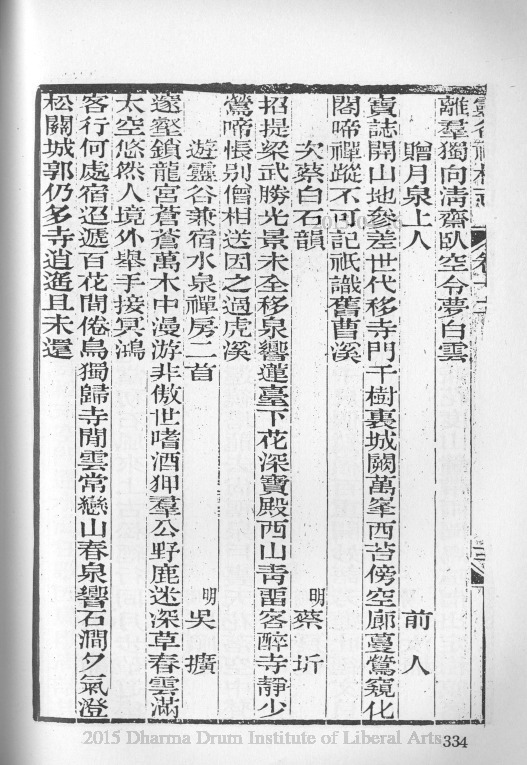 靈谷禪林志 卷十二
離羣獨向淸齋臥空令夢白雲
贈月泉上人 前人
寶誌開山地參差世代移寺門千樹裏城闕萬峯西苔傍空廊蔓鶯窺化
閣啼禪蹤不可記祇識舊曹溪
次蔡白石韻 明 蔡圻
招提梁武勝光景未全移泉響蓮臺下花深寶殿西山靑留客醉寺靜少
鶯啼悵別僧相送因之過虎溪
遊靈谷兼宿水泉禪房二首 明 吳擴
邃壑鎖龍宮蒼蒼萬木中漫游非傲世嗜酒狎羣公野鹿迷深草春雲滿
太空悠然人境外舉手接冥鴻
客行何處宿迢遞百花間倦鳥獨歸寺閒雲常戀山春泉響石澗夕氣澄
松關城郭仍多寺逍遙且未還
2015 Dharma Drum Institute of Liberal Arts
334